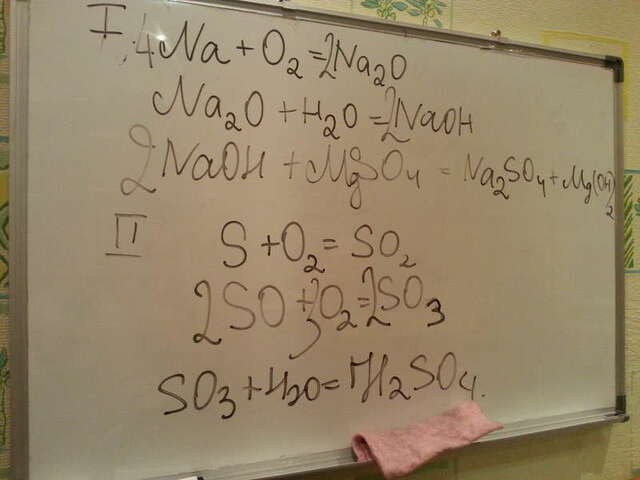 I. 4Na + O2 = 2Na2O
Na2O + H2O = 2NaOH
2NaOH + MgSO4 = Na2SO4 + Mg(OH)2
II
S + O2 = SO2
2SO + 3O2 = 2SO3
SO3 + H2O = H2SO4.